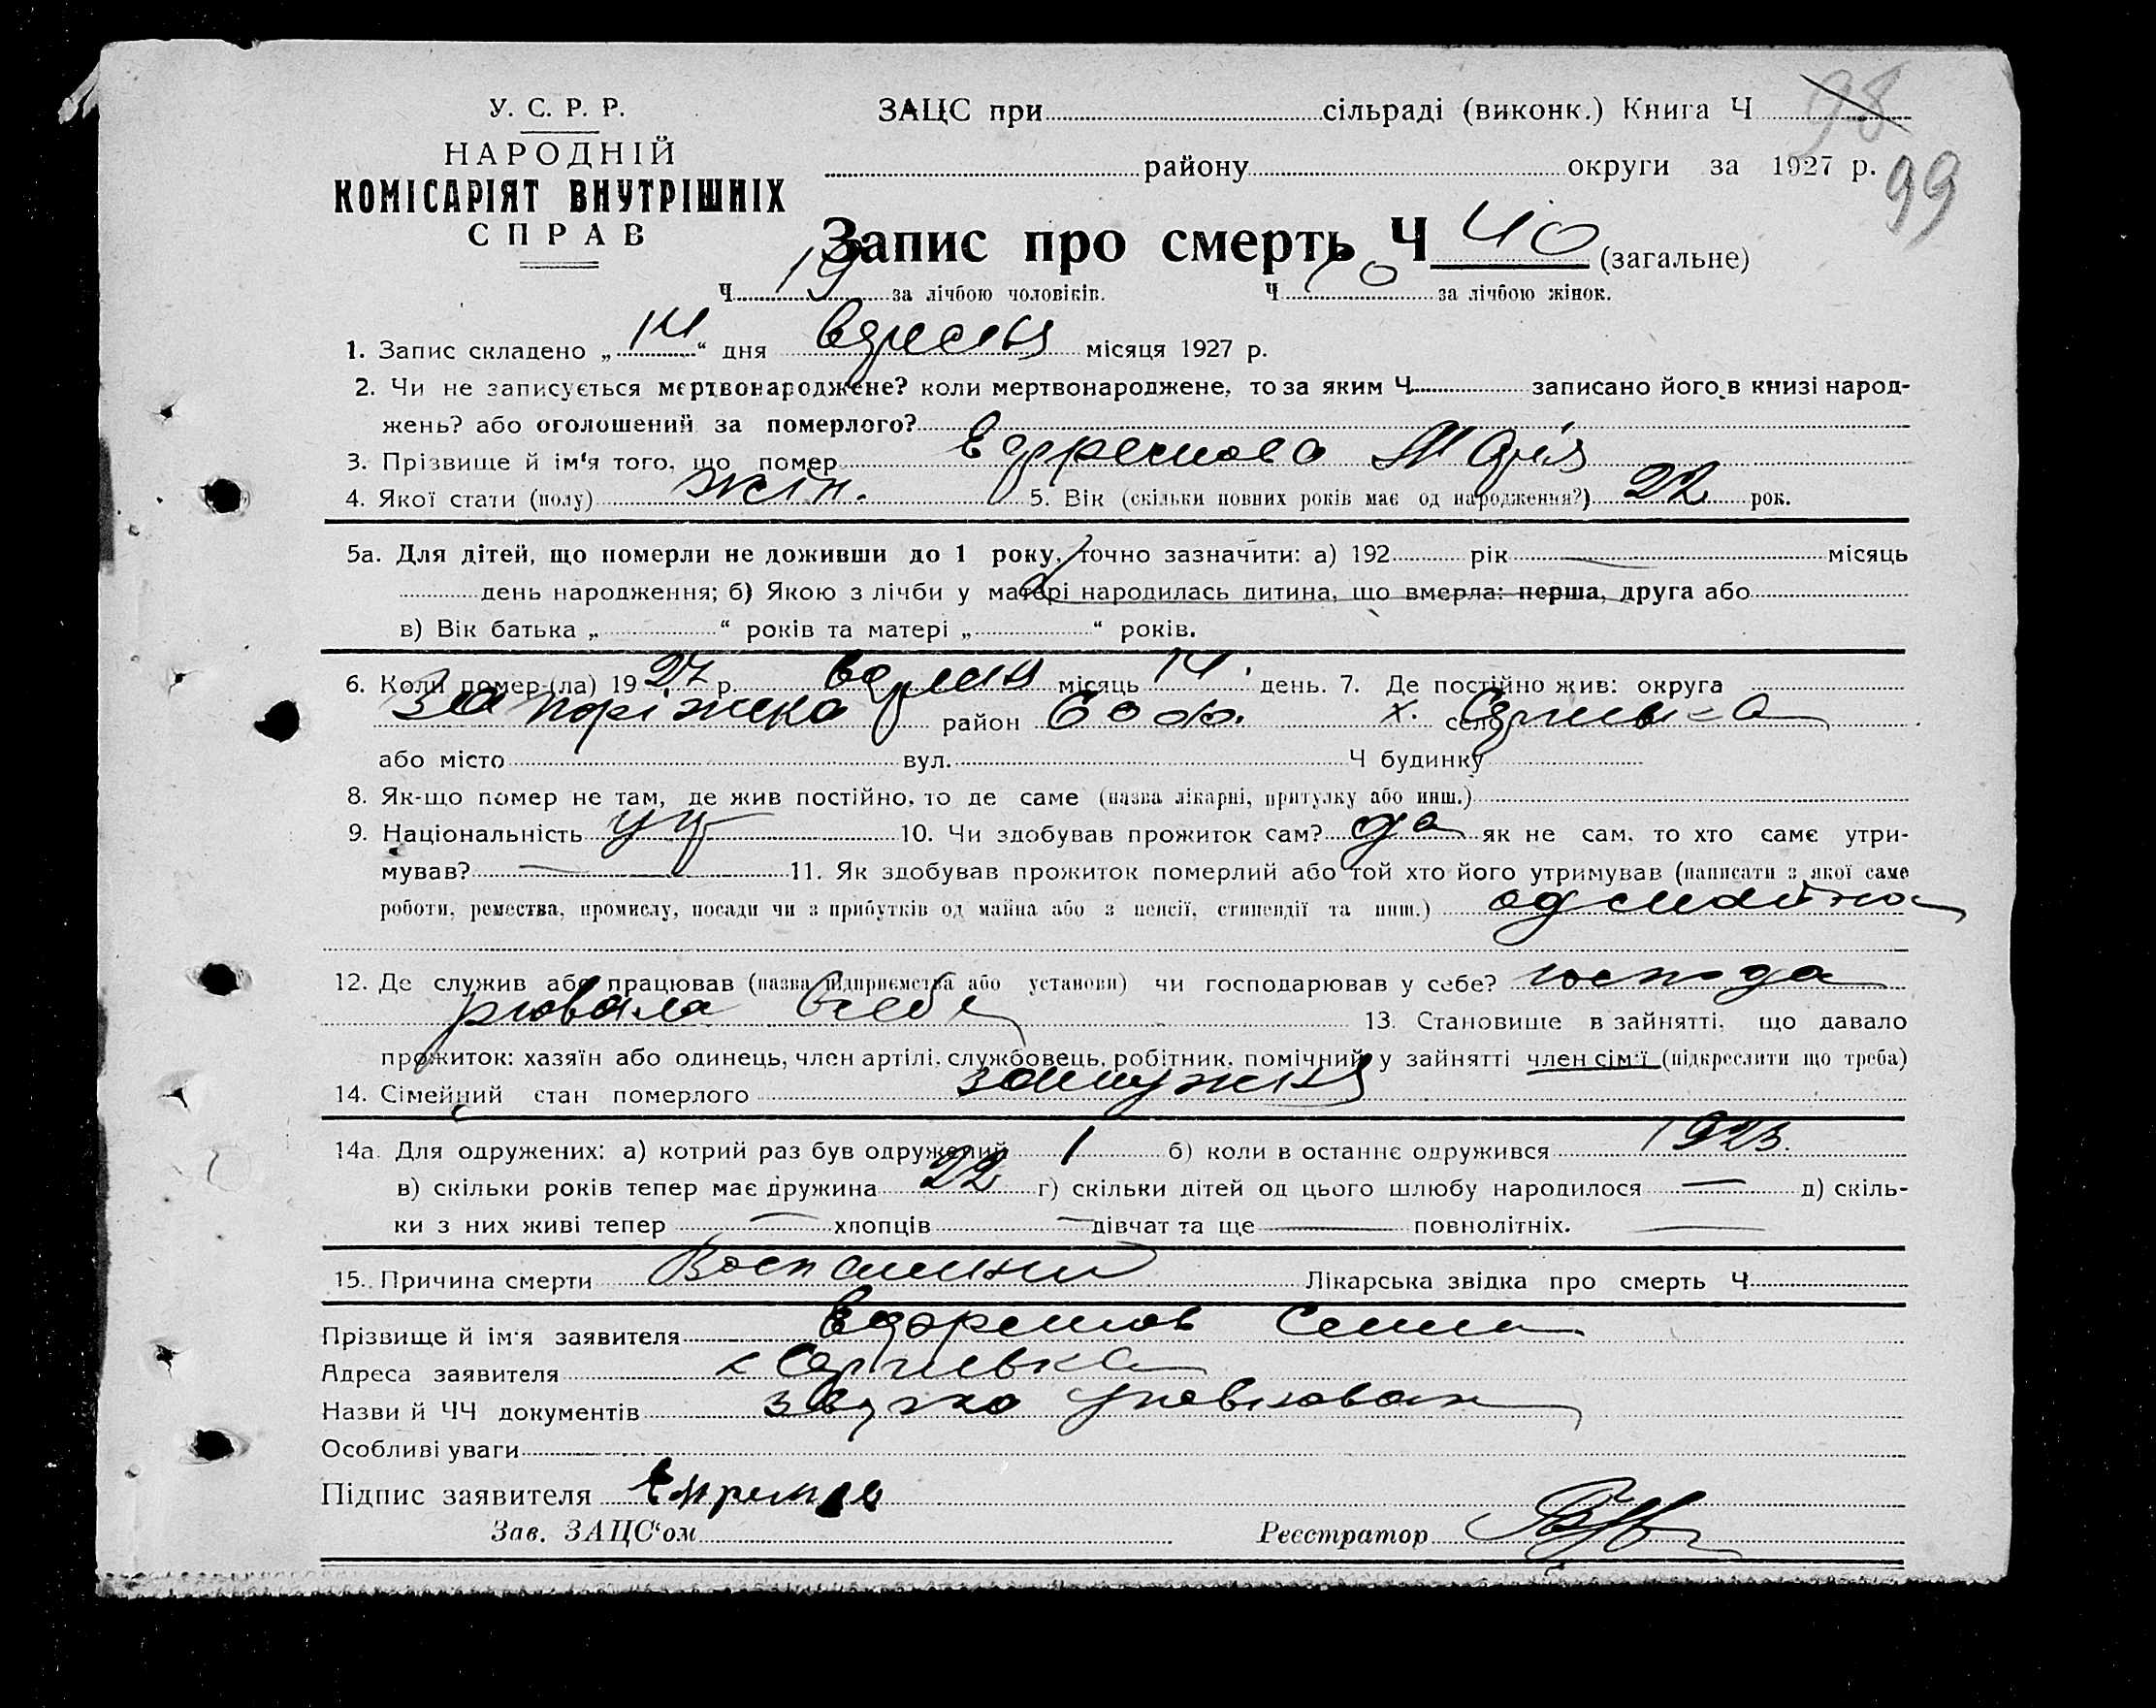 У. С. Р. Р.
НАРОДНІЙ
КОМІСАРІЯТ ВНУТРІШНІХ
СПРАВ
ЗАЦС при сільраді (виконк.) Книга Ч 98
району округи за 1927 р. 99
Запис про смерть Ч 40 (загальне)
Ч 19 за лічбою чоловіків. Ч за лічбою жінок.
1. Запис складено „14“ дня вересня місяця 1927 р.
2. Чи не записується мертвонароджене? коли мертвонароджене, то за яким Ч записано його в книзі народ-
жень? або оголошений за померлого?
3. Прізвище й ім'я того, що помер Марія
4. Якої стати (полу) жін. 5. Вік (скільки повних років має од народження?) 22 рок.
5а. Для дітей, що померли не доживши до 1 року, точно зазначити: а) 192 рік місяць
день народження; б) Якою з лічби у матері народилась дитина, що вмерла: перша, друга або
в) Вік батька „ “ років та матері „ “ років.
6. Коли помер-(ла) 1927 р. вересня місяць 14 день. 7. Де постійно жив: округа
Запоріжска район Соф. х. село Сергиевка
або місто вул. Ч будинку
8. Як-що помер не там, де жив постійно, то де саме (назва лікарні, притулку або инш.)
9. Національність 10. Чи здобував прожиток сам? да як не сам, то хто саме утри-
мував? 11. Як здобував прожиток померлий або той хто його утримував (написати з якої саме
роботи, ремества, промислу, посади чи з прибутків од майна або з пенсії, стипендії та инш.) од майна
12. Де служив або працював (назва підприємства або установи) чи господарював у себе? господа
рювала в себе 13. Становище в зайнятті, що давало
прожиток: хазяїн або одинець, член артілі, службовець, робітник, помічний у зайнятті член сім'ї (підкреслити що треба)
14. Сімейний стан померлого замужня
14а. Для одружених: а) котрий раз був одружений 1 б) коли в останнє одружився 1923.
в) скільки років тепер має дружина 22 г) скільки дітей од цього шлюбу народилося — д) скіль-
ки з них живі тепер — хлопців — дівчат та ще — повнолітніх. —
15. Причина смерти Лікарська звідка про смерть Ч
Прізвище й ім'я заявителя
Адреса заявителя х Сергиевка
Назви й ЧЧ документів
Особливі уваги
Підпис заявителя
Зав. ЗАЦС'ом Реєстратор